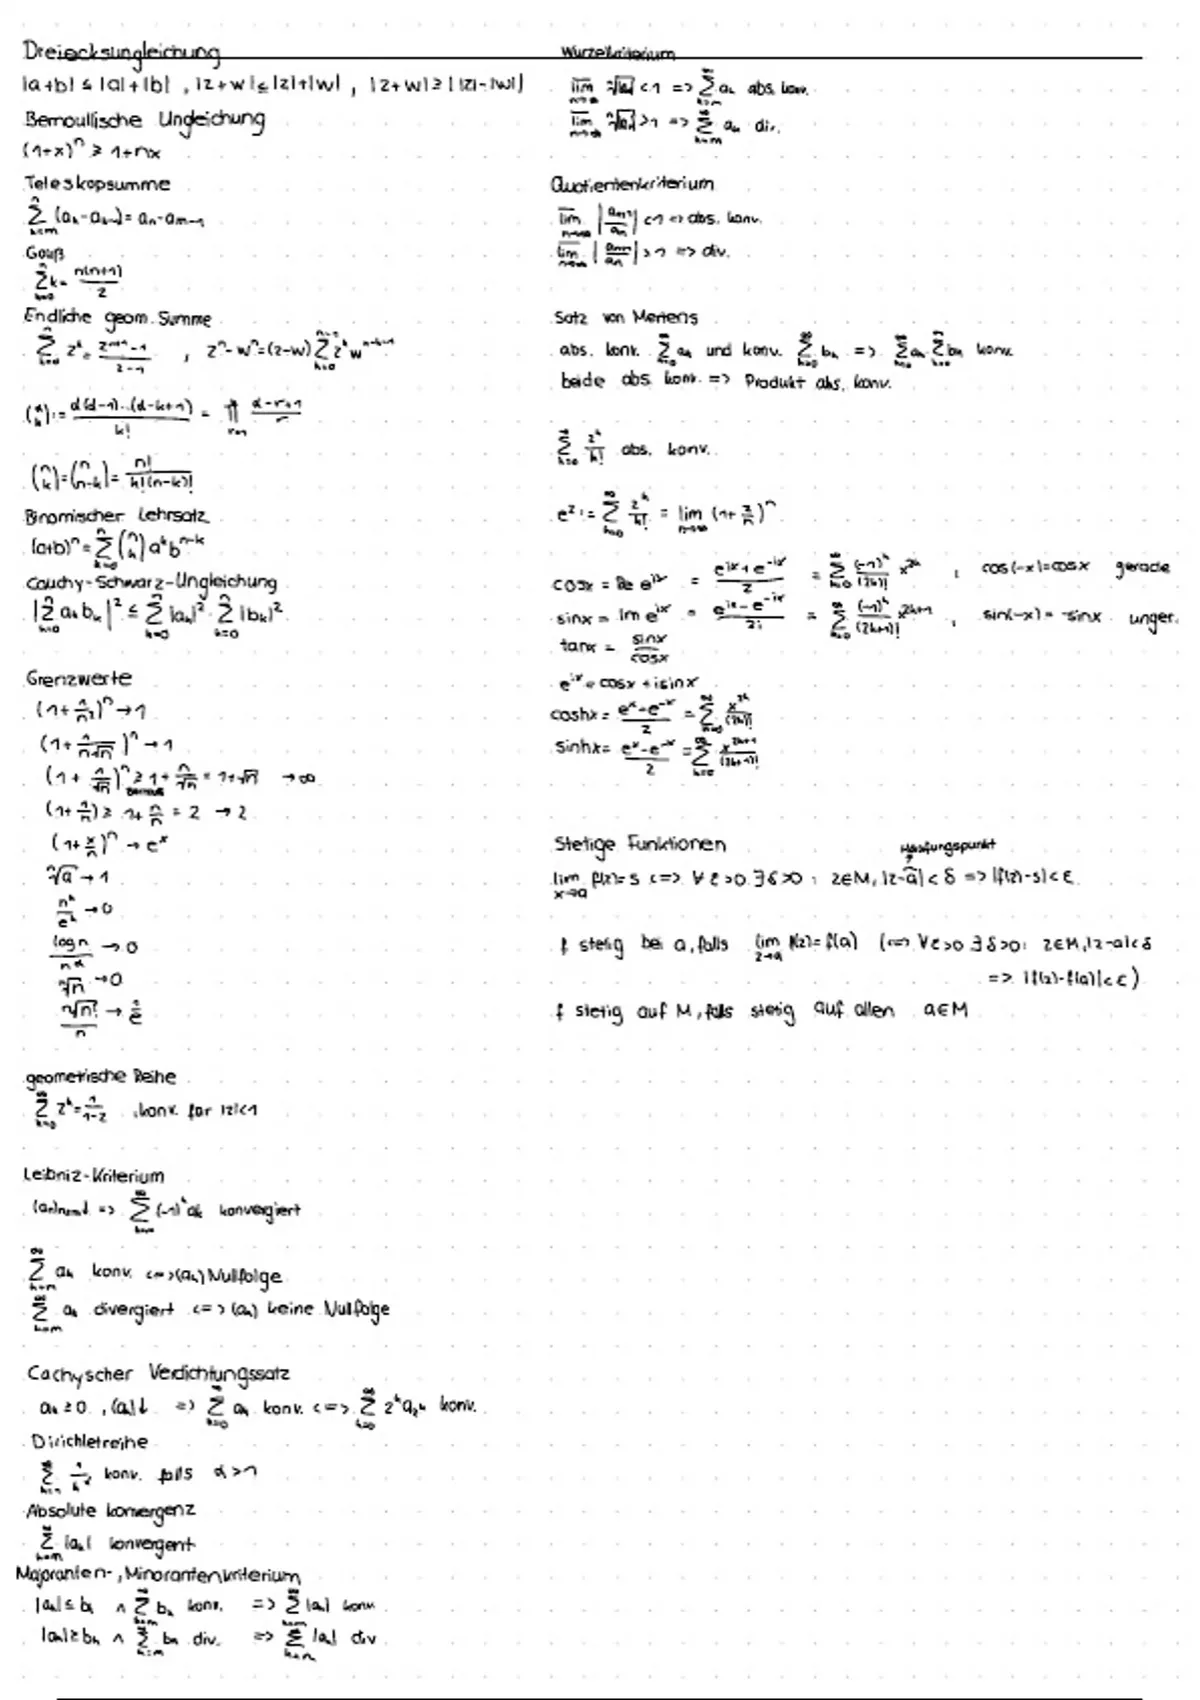 Dreiecksungleichung
|a+b| ≤ |a|+|b| , |z+w| ≤ |z|+|w| , |z+w| ≥ ||z|-|w||
Bernoullische Ungleichung
(1+x)^n ≥ 1+nx
Teleskopsumme
∑_{k=m}^{n} (a_k-a_{k-1}) = a_n-a_{m-1}
Gauß
∑_{k=0}^{n} k = n(n+1)/2
Endliche geom. Summe
∑_{k=0}^{n} z^k = (z^{n+1}-1)/(z-1) , z^n-w^n=(z-w)∑_{k=0}^{n-1} z^k w^{n-k-1}
(α k) := α(α-1)...(α-k+1)/k! = ∏_{r=1}^{k} (α-r+1)/r
(n k) = (n n-k) = n!/(k!(n-k)!)
Binomischer Lehrsatz
(a+b)^n = ∑_{k=0}^{n} (n k) a^k b^{n-k}
Cauchy-Schwarz-Ungleichung
|∑_{k=0}^{n} a_k b_k|² ≤ ∑_{k=0}^{n} |a_k|² · ∑_{k=0}^{n} |b_k|²
Grenzwerte
(1+1/n²)^n → 1
(1+1/(n√n))^n → 1
(1+1/√n)^n ≥ 1+n/√n = 1+√n → ∞
(1+1/n) ≥ 1+n/n = 2 → 2
(1+x/n)^n → e^x
ⁿ√a → 1
n^k/e^k → 0
log n/n^α → 0
ⁿ√n → 0
ⁿ√n!/n → 1/e
geometrische Reihe
∑_{k=0}^{∞} z^k = 1/(1-z) , konv. für |z|<1
Leibniz-Kriterium
(a_n)_{n∈ℕ}↓ => ∑_{k=m}^{∞} (-1)^k a_k konvergiert
∑_{k=m}^{∞} a_k konv. <=> (a_k) Nullfolge
∑_{k=m}^{∞} a_k divergiert <=> (a_k) keine Nullfolge
Cachyscher Verdichtungssatz
a_k ≥ 0 , (a_k)↓ => ∑_{k=0}^{∞} a_k konv. <=> ∑_{k=0}^{∞} 2^k a_{2^k} konv.
Dirichletreihe
∑_{k=1}^{∞} 1/k^α konv. falls α>1
Absolute konvergenz
∑_{k=m}^{∞} |a_k| konvergent
Majoranten-, Minorantenkriterium
|a_k| ≤ b_k ∧ ∑_{k=m}^{∞} b_k konv. => ∑_{k=m}^{∞} |a_k| konv.
|a_k| ≥ b_k ∧ ∑_{k=m}^{∞} b_k div. => ∑_{k=m}^{∞} |a_k| div
Wurzelkriterium
lim_{n→∞} ⁿ√|a_n| < 1 => ∑_{k=m}^{∞} a_k abs. konv.
lim_{n→∞} ⁿ√|a_n| > 1 => ∑_{k=m}^{∞} a_k div.
Quotientenkriterium
lim_{n→∞} |a_{n+1}/a_n| < 1 => abs. konv.
lim_{n→∞} |a_{n+1}/a_n| > 1 => div.
Satz von Mertens
abs. konv. ∑_{k=0}^{∞} a_k und konv. ∑_{k=0}^{∞} b_k => ∑_{k=0}^{∞} a_k ∑_{k=0}^{∞} b_k konv.
beide abs. konv. => Produkt abs. konv.
∑_{k=0}^{∞} z^k/k! abs. konv.
e^z := ∑_{k=0}^{∞} z^k/k! = lim_{n→∞} (1+z/n)^n
cosx = Re e^{ix} = (e^{ix}+e^{-ix})/2 = ∑_{k=0}^{∞} (-1)^k/(2k)! x^{2k} , cos(-x)=cosx gerade
sinx = Im e^{ix} = (e^{ix}-e^{-ix})/2i = ∑_{k=0}^{∞} (-1)^k/(2k+1)! x^{2k+1} , sin(-x) = -sinx unger.
tanx = sinx/cosx
e^{ix} = cosx + isinx
coshx = (e^x-e^{-x})/2 = ∑_{k=0}^{∞} x^{2k}/(2k)!
sinhx = (e^x-e^{-x})/2 = ∑_{k=0}^{∞} x^{2k+1}/(2k+1)!
Stetige Funktionen
Häufungspunkt
lim_{x→a} f(z)=s <=> ∀ε>0 ∃δ>0 : z∈M, |z-a|<δ => |f(z)-s|<ε
f stetig bei a, falls lim_{z→a} f(z)=f(a) (<=> ∀ε>0 ∃δ>0: z∈M, |z-a|<δ
=> |f(z)-f(a)|<ε)
f stetig auf M, falls stetig auf allen a∈M